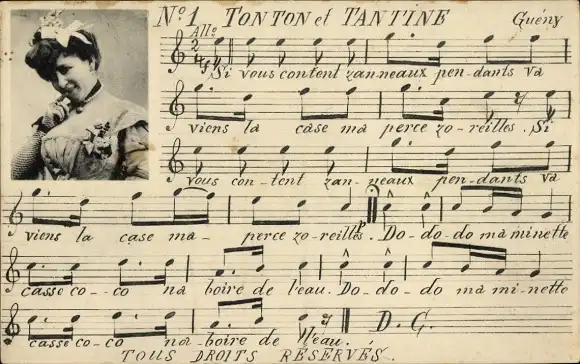 Nº 1 TONTON et TANTINE Guény
Allº
2/4
Si vous con tent zan-neaux pen-dants va
viens la case ma perce zo-reilles. Si
vous con-tent zan-neaux pen-dants va
viens la case ma- perce zo-reilles. Do-do-do ma minette
p
casse co-co na boire de l'eau. Do-do-do ma mi-nette
casse co-co na-boire de l'eau. D. C.
TOUS DROITS RÉSERVÉS.